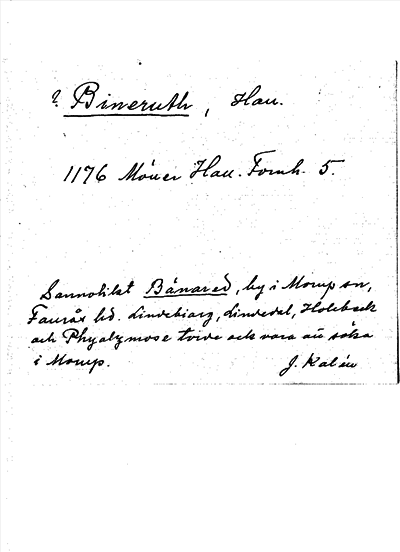 ? Bineruth, Hall.
1176 Möller Hall. Fornh. 5.
Sannolikt Bånared, by i Morup sn,
Faurås hd. Lindebiarg, Lindedel, Holsback
och Phyalzmose torde ock vara att söka
i Morup.
J. Kalén